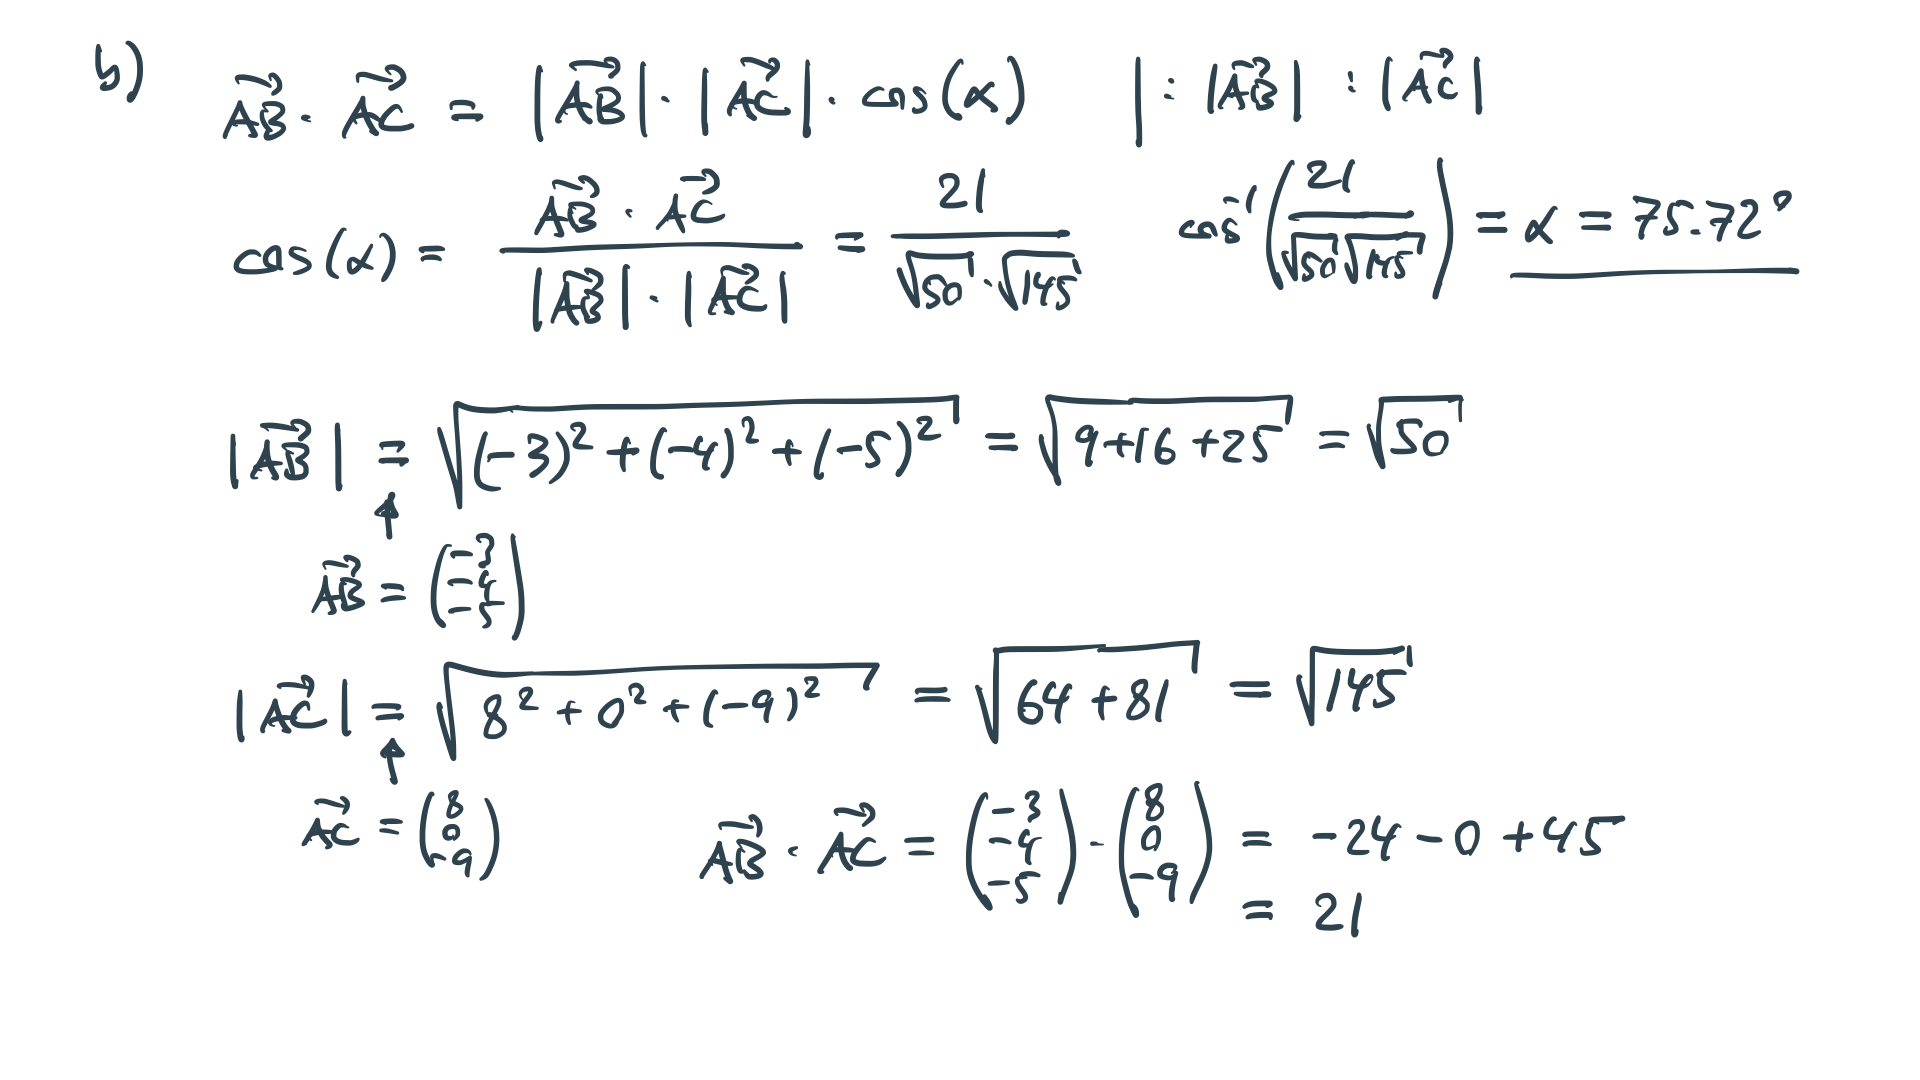 b) AB⃗ · AC⃗ = |AB⃗| · |AC⃗| · cos(α) | : |AB⃗| : |AC⃗|
cos(α) = (AB⃗ · AC⃗)/(|AB⃗| · |AC⃗|) = 21/(√50 · √145) cos⁻¹(21/(√50 √145)) = α = 75.72°
|AB⃗| = √((-3)² + (-4)² + (-5)²) = √(9+16+25) = √50
↑
AB⃗ = (-3 -4 -5)
|AC⃗| = √(8² + 0² + (-9)²) = √(64+81) = √145
↑
AC⃗ = (8 0 -9) AB⃗ · AC⃗ = (-3 -4 -5) · (8 0 -9) = -24 - 0 + 45
= 21